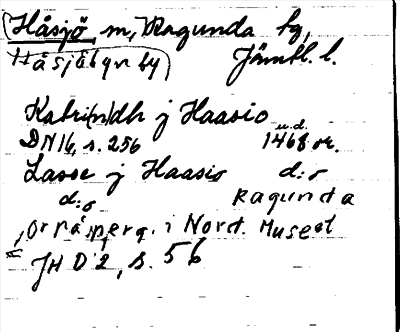 Håsjö m, Ragunda hg,
Håsjöbyn by Jämtl. l.
Katri(n)dh j Haasio
u.d.
DN 16, s. 256 1468 or.
Lasse j Haasio d:o
d:o Ragunda
Ornäsperg. i Nord. Museet
= JH D 2, s. 56